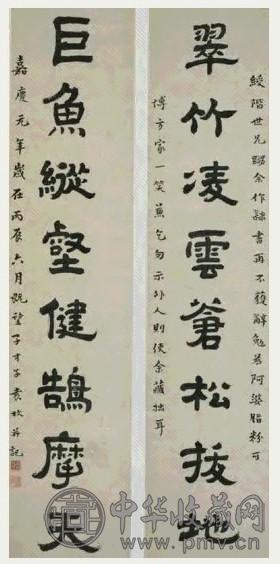 綬階世兄賜余作隸書再不獲辭勉爲阿婆脂粉可
翠竹凌雲蒼松拔地
博方家一笑兼乞勿示外人則使余藏拙耳
巨魚縱壑健鵠摩天
嘉慶元年歲在丙辰六月既望子才子袁枚并記
中华收藏网
www.pmv.cn